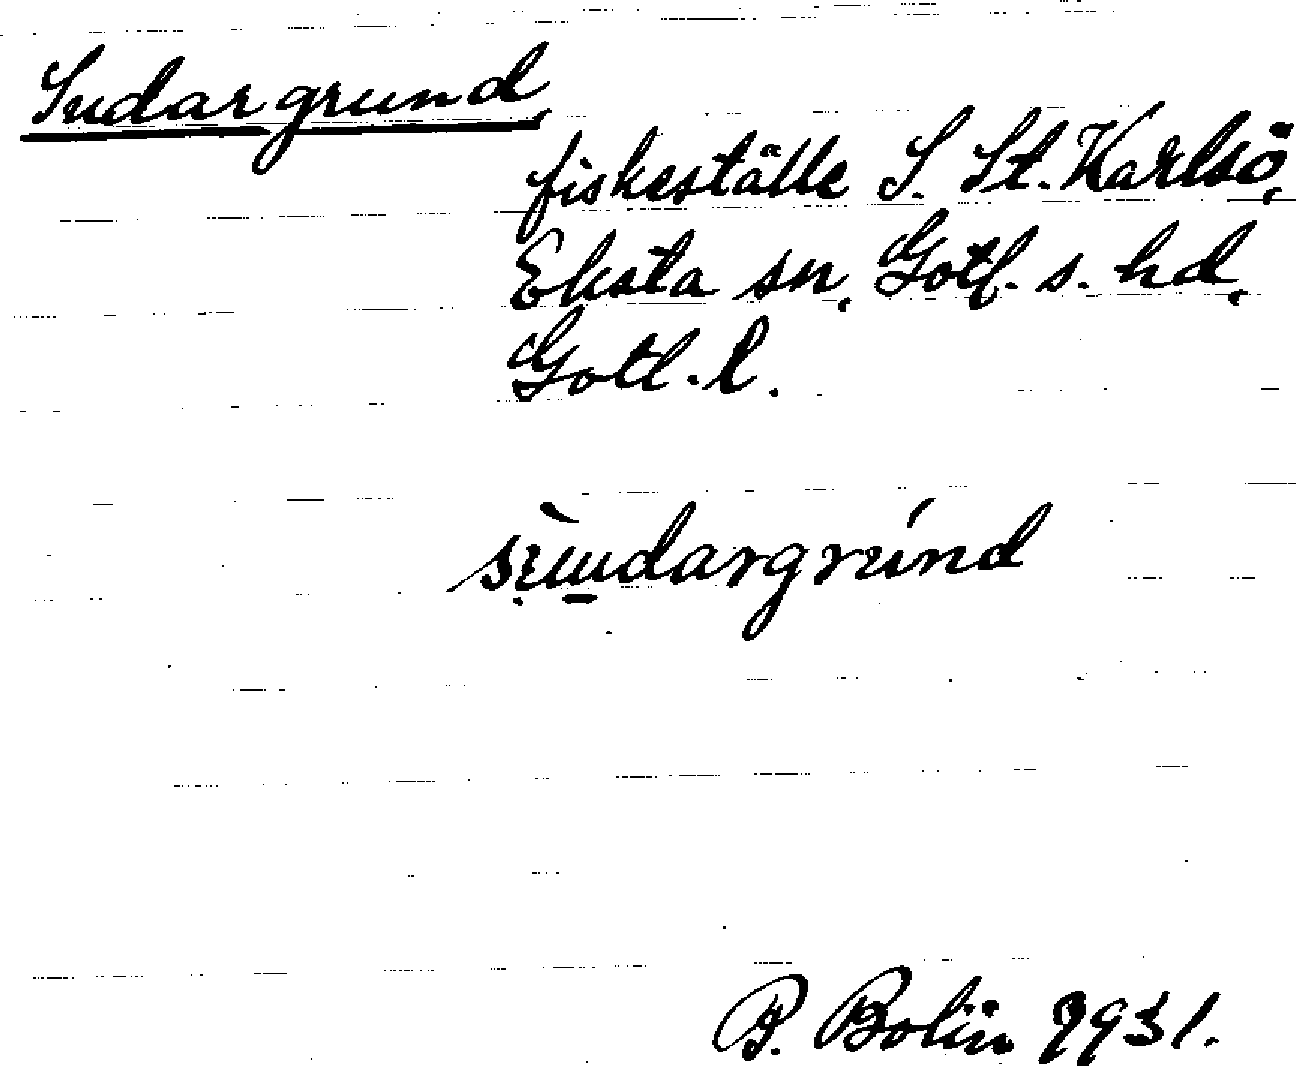 Sudargrund
fiskeställe S. St. Karlsö,
Eksta sn, Gotl. s. hd,
Gotl. l.
P. Bolin 1931.